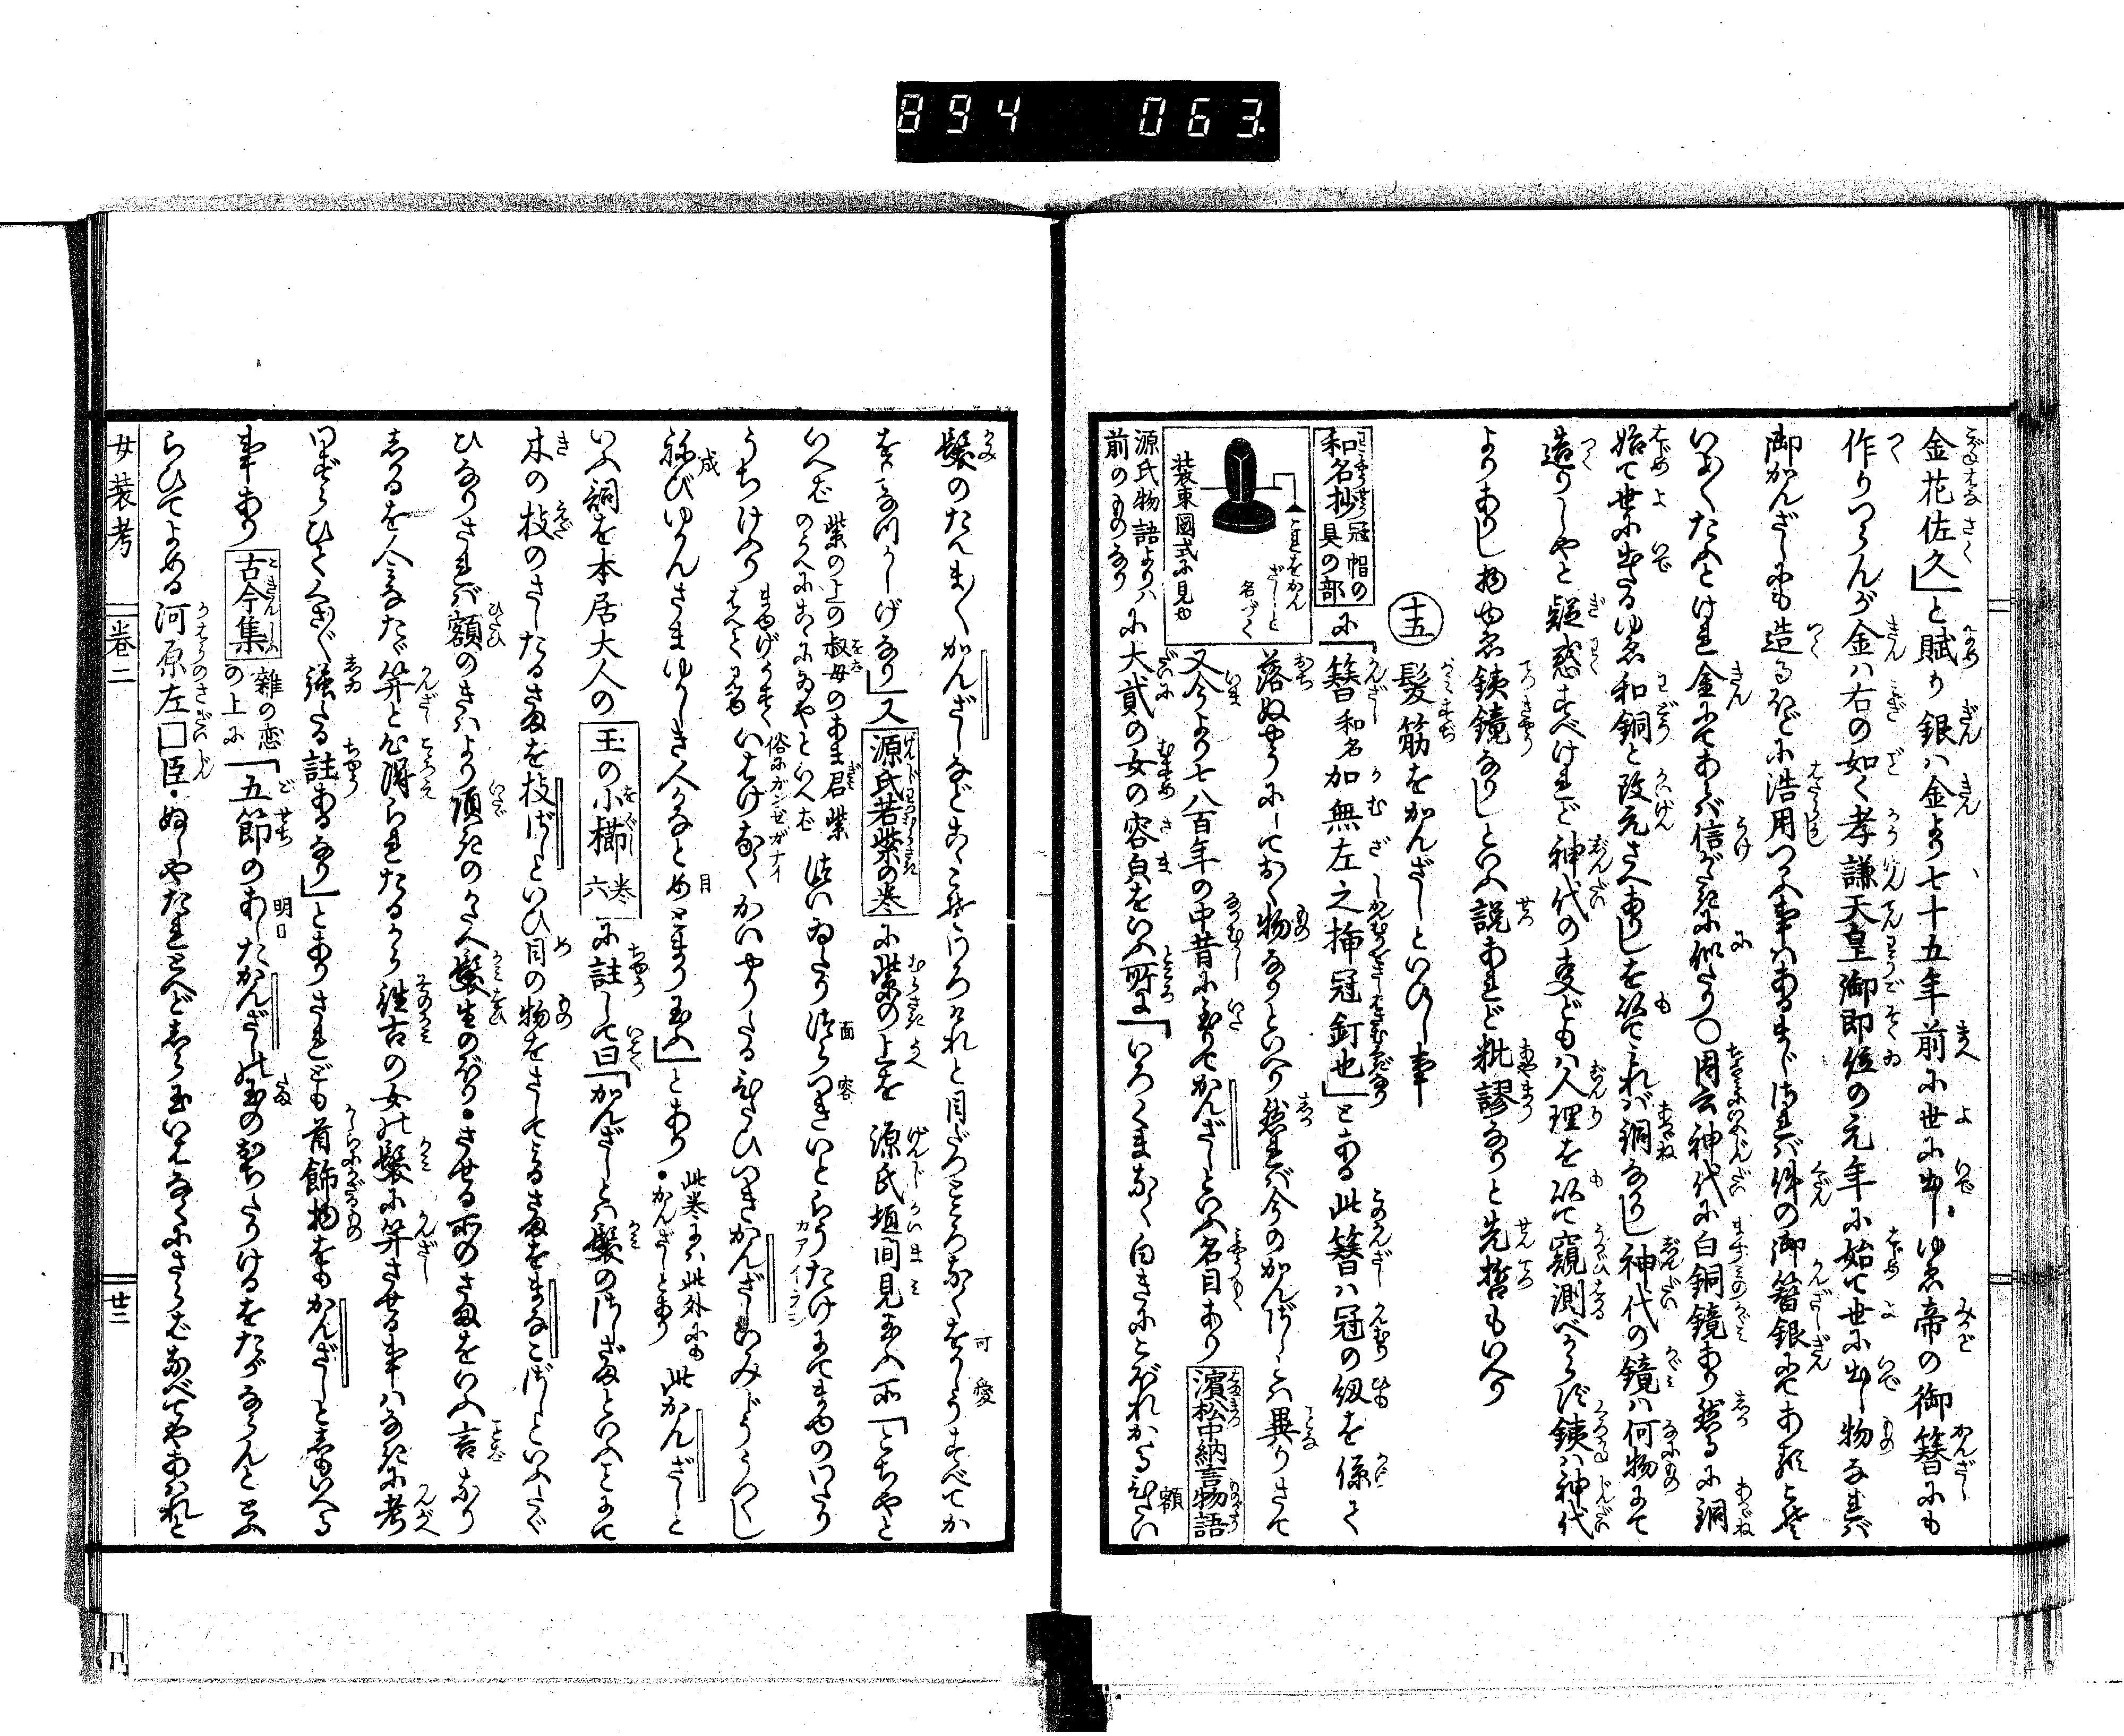 894 063
金花佐久」と賦り銀ハ金より七十五年前に世に出しゆゑ帝の御簪にも
作りつらんが金ハ右の如く孝謙天皇御即位の元年に始て世に出し物なれバ
御かんざしにも造るほどに浩用つかふ事ハあるまじけれバ件の御簪銀にてありけんとぞ
いはくたふとけれ金にてあらバ信がたきに似たり〇因云神代に白銅鏡あり然るに銅
始て世に出たるゆゑ和銅と改元さへありしを以てこれバ銅なりし神代の鏡ハ何物にて
造りしやと疑惑すべけれど神代の事どもハ人理を以て窺測べからず銕ハ神代
よりありし物ゆゑ銕鏡なりしといふ説あれど粃謬なりと先哲もいへり
十五 髪筋をかんざしといひし事
和名抄 冠帽の具の部 に「簪 和名加無左之挿冠釘也」とある此簪ハ冠の紐を係て
これをかんざしと名づく
装束図式に見ゆ
落ぬやうにしておく物なりといへり然れバ今のかんざしとハ異りさて
又今より七八百年の中昔に至りてかんざしといふ名目あり 濱松中納言物語
源氏物語よりハ前のものなり に大貳の女の容貌をいふ所に「いろくまなく白きにこぼれかゝるひたい
髪のたんまくかんざしなどこゝぞといろれと目だつところなくをかしうすべてか
をかなつかしげなり」又 源氏若紫の巻 に紫の上を源氏垣間見玉ふ所「こちやと
いへば 紫の上の叔母のあま君紫のうへにこゝにゐやといへば ついゐたりつらつきいとらうたけにてまゆのわたり
うちけふり まゆげうすくはえてみゆ いはけなく 俗にガンゼガナイ かいやりたるひたひいきかんざしいみじううつくし
ねびゆかんさまゆかしき人かなとめとまり玉ふ」とあり・此巻にハ此外にもかんざしとあり 此かんざしと
いふ詞を本居大人の 玉の小櫛 六巻 に註して曰「かんざしとハ髪のさしざまといふことにて
木の枝のさしたるさまを枝ざしといひ目の物をさしてみるさまをまなこざしといふたぐ
ひなりされバ額のきハより頂きのかたへ髪生のぼり・させる所のさまをいふ言なり
しかるを人みなたゞ笄と心得られたるから往古の女の髪に笄させる事ハなきに考
わづらひてくさ〴〵強たる註あるなり」とありされども首飾物をもかんざしとしもいへる
事あり 古今集 雑の恋の上に 「五節のあしたかんざしの玉のおちたりけるをたがならんととふ
らひてよめる 河原左□臣・ぬしやたれとへどしら玉いはなくにさらばなべてやあはれと
女装考 巻二 廿二